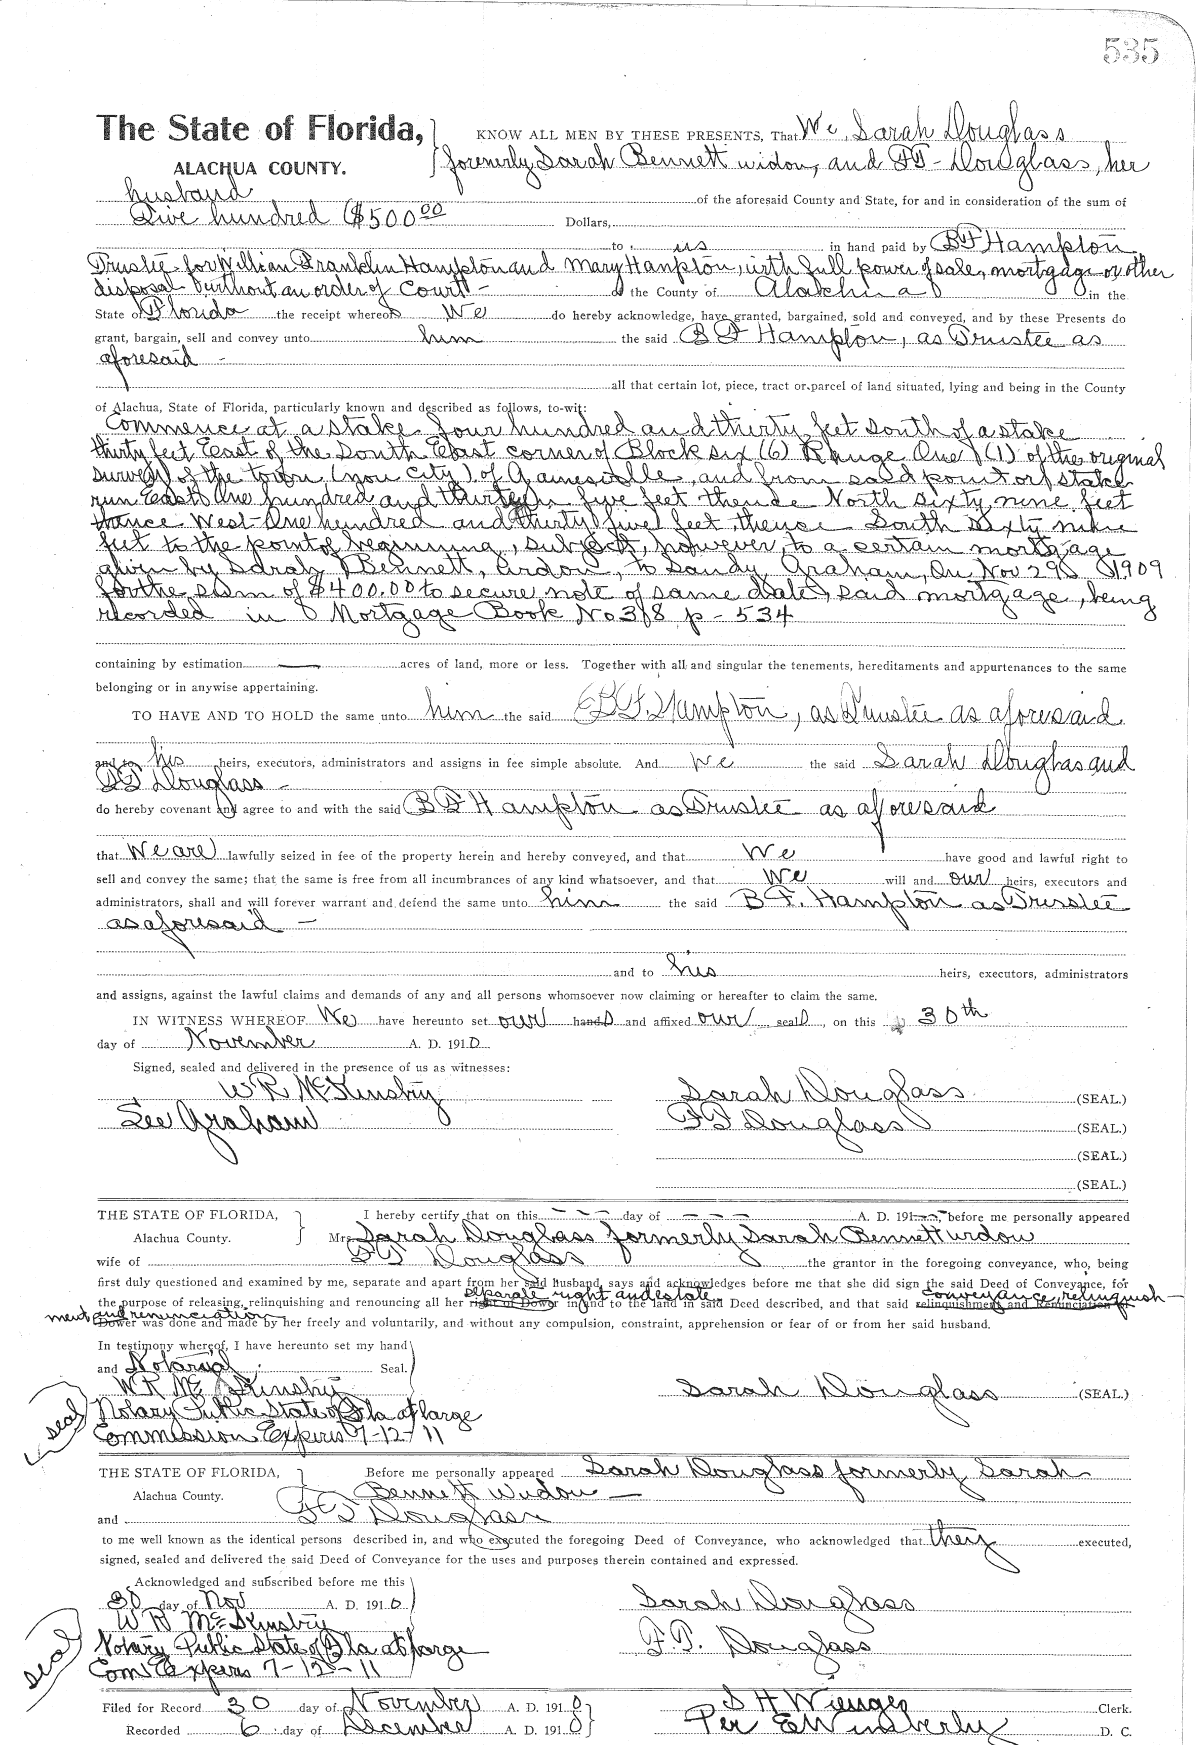 535
The State of Florida, KNOW ALL MEN BY THESE PRESENTS, That We, Sarah Douglass
ALACHUA COUNTY. formerly Sarah Bennett widow, and Douglass, her
husband of the aforesaid County and State, for and in consideration of the sum of
Five hundred ($500 00 Dollars,
to us in hand paid by B F Hampton,
Trustee for William Franklin Hampton and Mary Hampton, with full power of sale, mortgage or other
disposal without an order of Court - of the County of Alachua in the
State of Florida the receipt whereof We do hereby acknowledge, have granted, bargained, sold and conveyed, and by these Presents do
grant, bargain, sell and convey unto him the said B F Hampton, as Trustee as
aforesaid -
all that certain lot, piece, tract or parcel of land situated, lying and being in the County
of Alachua, State of Florida, particularly known and described as follows, to-wit:
Commence at a stake four hundred and thirty feet South of a stake
thirty feet East of the South East corner of Block six (6) Range One (1) of the original
survey of the town (now city) of Gainesville, and from said point or stake
run East One hundred and five feet thence North sixty nine feet
thence West One hundred and thirty five feet, thence South sixty nine
feet to the point of beginning, subject, however, to a certain mortgage
given by Sarah Bennett, widow, to Sandy Graham, On Nov 29 1909
for the sum of $400.00 to secure note of same date, said mortgage, being
recorded in Mortgage Book No 38 p - 534
containing by estimation acres of land, more or less. Together with all and singular the tenements, hereditaments and appurtenances to the same
belonging or in anywise appertaining.
TO HAVE AND TO HOLD the same unto him the said B.F. Hampton, as Trustee as aforesaid
and to his heirs, executors, administrators and assigns in fee simple absolute. And We the said Sarah Douglas and
Douglass -
do hereby covenant and agree to and with the said B F Hampton as Trustee as aforesaid
that We are lawfully seized in fee of the property herein and hereby conveyed, and that We have good and lawful right to
sell and convey the same; that the same is free from all incumbrances of any kind whatsoever, and that We will and our heirs, executors and
administrators, shall and will forever warrant and defend the same unto him the said B. F. Hampton as Trustee
as aforesaid -
and to his heirs, executors, administrators
and assigns, against the lawful claims and demands of any and all persons whomsoever now claiming or hereafter to claim the same.
IN WITNESS WHEREOF We have hereunto set our hands and affixed our seals, on this 30th
day of November A. D. 1910
Signed, sealed and delivered in the presence of us as witnesses:
W R McKinstry Sarah Douglass (SEAL.)
Graham Douglass (SEAL.)
(SEAL.)
(SEAL.)
THE STATE OF FLORIDA, I hereby certify that on this - - - day of - - - A. D. 191 before me personally appeared
Alachua County. Mrs. Sarah Douglass formerly Sarah Bennett widow
wife of Douglass the grantor in the foregoing conveyance, who, being
first duly questioned and examined by me, separate and apart from her said husband, says and acknowledges before me that she did sign the said Deed of Conveyance, for
separate right and estate conveyance, relinquish-
the purpose of releasing, relinquishing and renouncing all her right of Dower in and to the land in said Deed described, and that said relinquishment and Renunciation of
ment and renunciation
Dower was done and made by her freely and voluntarily, and without any compulsion, constraint, apprehension or fear of or from her said husband.
In testimony whereof, I have hereunto set my hand
and Notarial Seal.
W R McKinstry Sarah Douglass (SEAL.)
seal Notary Public State of Fla at large
Commission Expires 7-12-11
THE STATE OF FLORIDA, Before me personally appeared Sarah Douglass formerly Sarah
Alachua County. Bennett Widow -
and Douglass
to me well known as the identical persons described in, and who executed the foregoing Deed of Conveyance, who acknowledged that they executed,
signed, sealed and delivered the said Deed of Conveyance for the uses and purposes therein contained and expressed.
Acknowledged and subscribed before me this
30 day of Nov A. D. 1910 Sarah Douglass
W R McKinstry
seal Notary Public State of Fla at large Douglass
Com Expires 7-12-11
Filed for Record 30 day of November A. D. 1910 S H Wienges Clerk.
Recorded 6 day of December A. D. 1910 Per E Wimberly D. C.